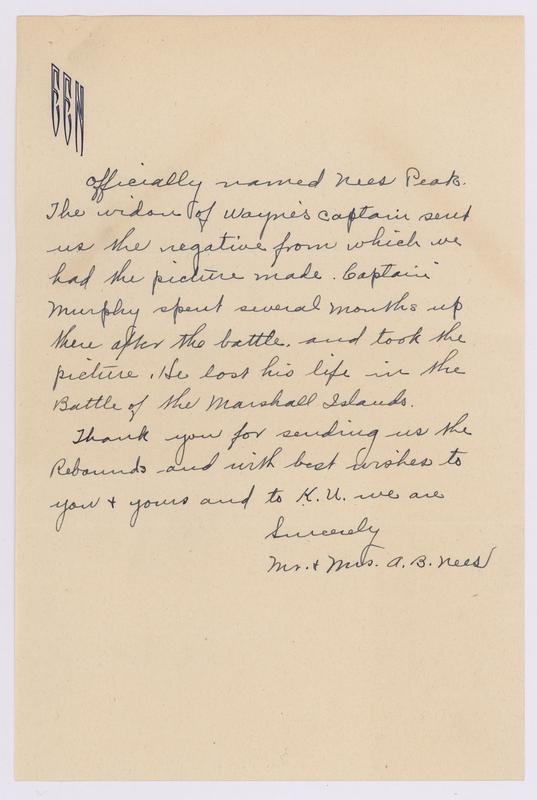 EEN
officially named Nees Peak.
The widow of Wayne's captain sent
us the negative from which we
had the picture made. Captain
Murphy spent several months up
there after the battle. and took the
picture. He lost his life in the
Battle of the Marshall Islands.
Thank you for sending us the
Rebounds and with best wishes to
you & yours and to K.U. we are
Sincerely
Mr. & Mrs. A. B. Nees